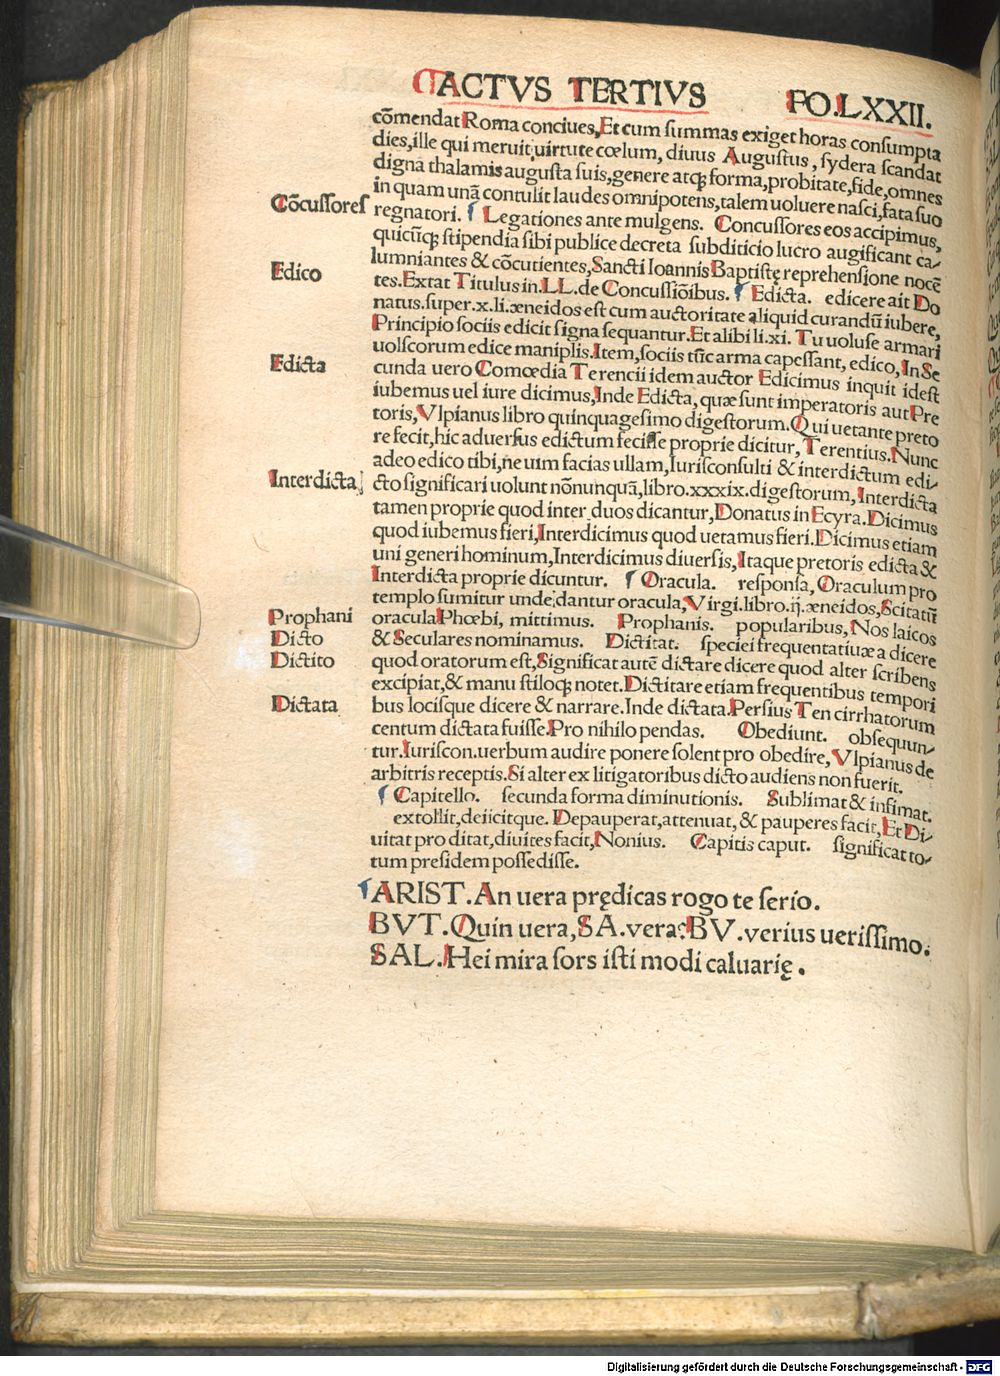 ACTVS TERTIVS FO.LXXII.
cõmendat Roma conciues, Et cum summas exiget horas consumpta
dies, ille qui meruit uirtute cœlum, diuus Augustus, sydera scandat
digna thalamis augusta suis, genere atqꝫ forma, probitate, fide, omnes
in quam unã contulit laudes omnipotens, talem uoluere nasci, fata suo
Cõcussores
regnatori. ¶ Legationes ante mulgens. Concussores eos accipimus,
quicũqꝫ stipendia sibi publice decreta subditicio lucro augificant ca-
lumniantes & cõcutientes, Sancti Ioannis Baptistę reprehensione nocẽ
Edico
tes. Extat Titulus in. LL. de Concussiõibus. ¶ Edicta. edicere ait Do
natus. super. x. li. æneidos est cum auctoritate aliquid curandũ iubere,
Principio sociis edicit signa sequantur. Et alibi li. xi. Tu uoluse armari
uolscorum edice maniplis. Item, sociis tũc arma capessant, edico, In Se
Edicta
cunda uero Comœdia Terencii idem auctor Edicimus inquit idest
iubemus uel iure dicimus, Inde Edicta, quæ sunt imperatoris aut Pre
toris, Vlpianus libro quinquagesimo digestorum. Qui uetante preto
re fecit, hic aduersus edictum fecisse proprie dicitur, Terentius. Nunc
adeo edico tibi, ne uim facias ullam, Iurisconsulti & interdictum edi-
Interdicta
cto significari uolunt nõnunquã, libro. xxxix. digestorum, Interdicta
tamen proprie quod inter duos dicantur, Donatus in Ecyra. Dicimus
quod iubemus fieri, Interdicimus quod uetamus fieri. Dicimus etiam
uni generi hominum, Interdicimus diuersis, Itaque pretoris edicta &
Interdicta proprie dicuntur. ¶ Oracula. responsa, Oraculum pro
templo sumitur unde dantur oracula, Virgi. libro. ij. æneidos, Scitatũ
Prophani
oracula Phœbi, mittimus. Prophanis. popularibus, Nos laicos
Dicto
& Seculares nominamus. Dictitat. speciei frequentatiuæ a dicere
Dictito
quod oratorum est, Significat autẽ dictare dicere quod alter scribens
excipiat, & manu stiloqꝫ notet. Dictitare etiam frequentibus tempori
Dictata
bus locisque dicere & narrare. Inde dictata. Persius Ten cirrhatorum
centum dictata fuisse. Pro nihilo pendas. Obediunt. obsequun-
tur. Iuriscon. uerbum audire ponere solent pro obedire, Vlpianus de
arbitris receptis. Si alter ex litigatoribus dicto audiens non fuerit.
¶ Capitello. secunda forma diminutionis. Sublimat & infimat.
extollit, deiicitque. Depauperat, attenuat, & pauperes facit, Et Di-
uitat pro ditat, diuites facit, Nonius. Capitis caput. significat to-
tum presidem possedisse.
¶ ARIST. An uera prędicas rogo te serio.
BVT. Quin uera, SA. vera? BV. verius uerissimo.
SAL. Hei mira sors isti modi caluarię.
Digitalisierung gefördert durch die Deutsche Forschungsgemeinschaft - DFG